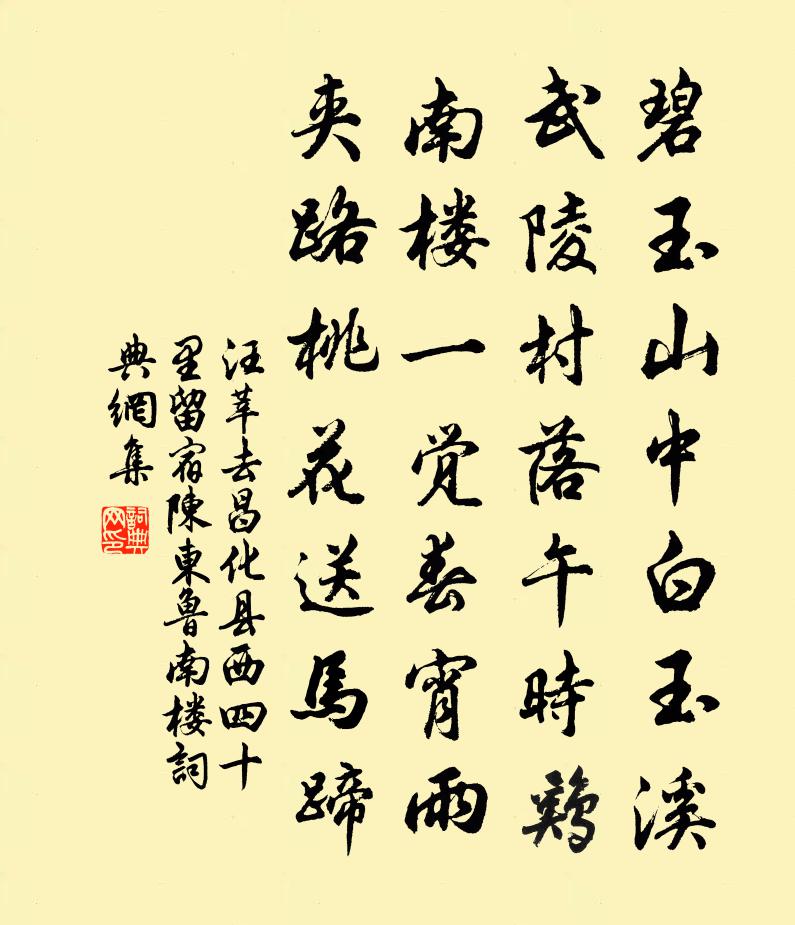 碧玉山中白玉溪
武陵村落午時鷄
南楼一觉春宵雨
夹路桃花送馬蹄
汪莘去昌化县西四十
里留宿陳東魯南楼詞
典網集
詞典
网印